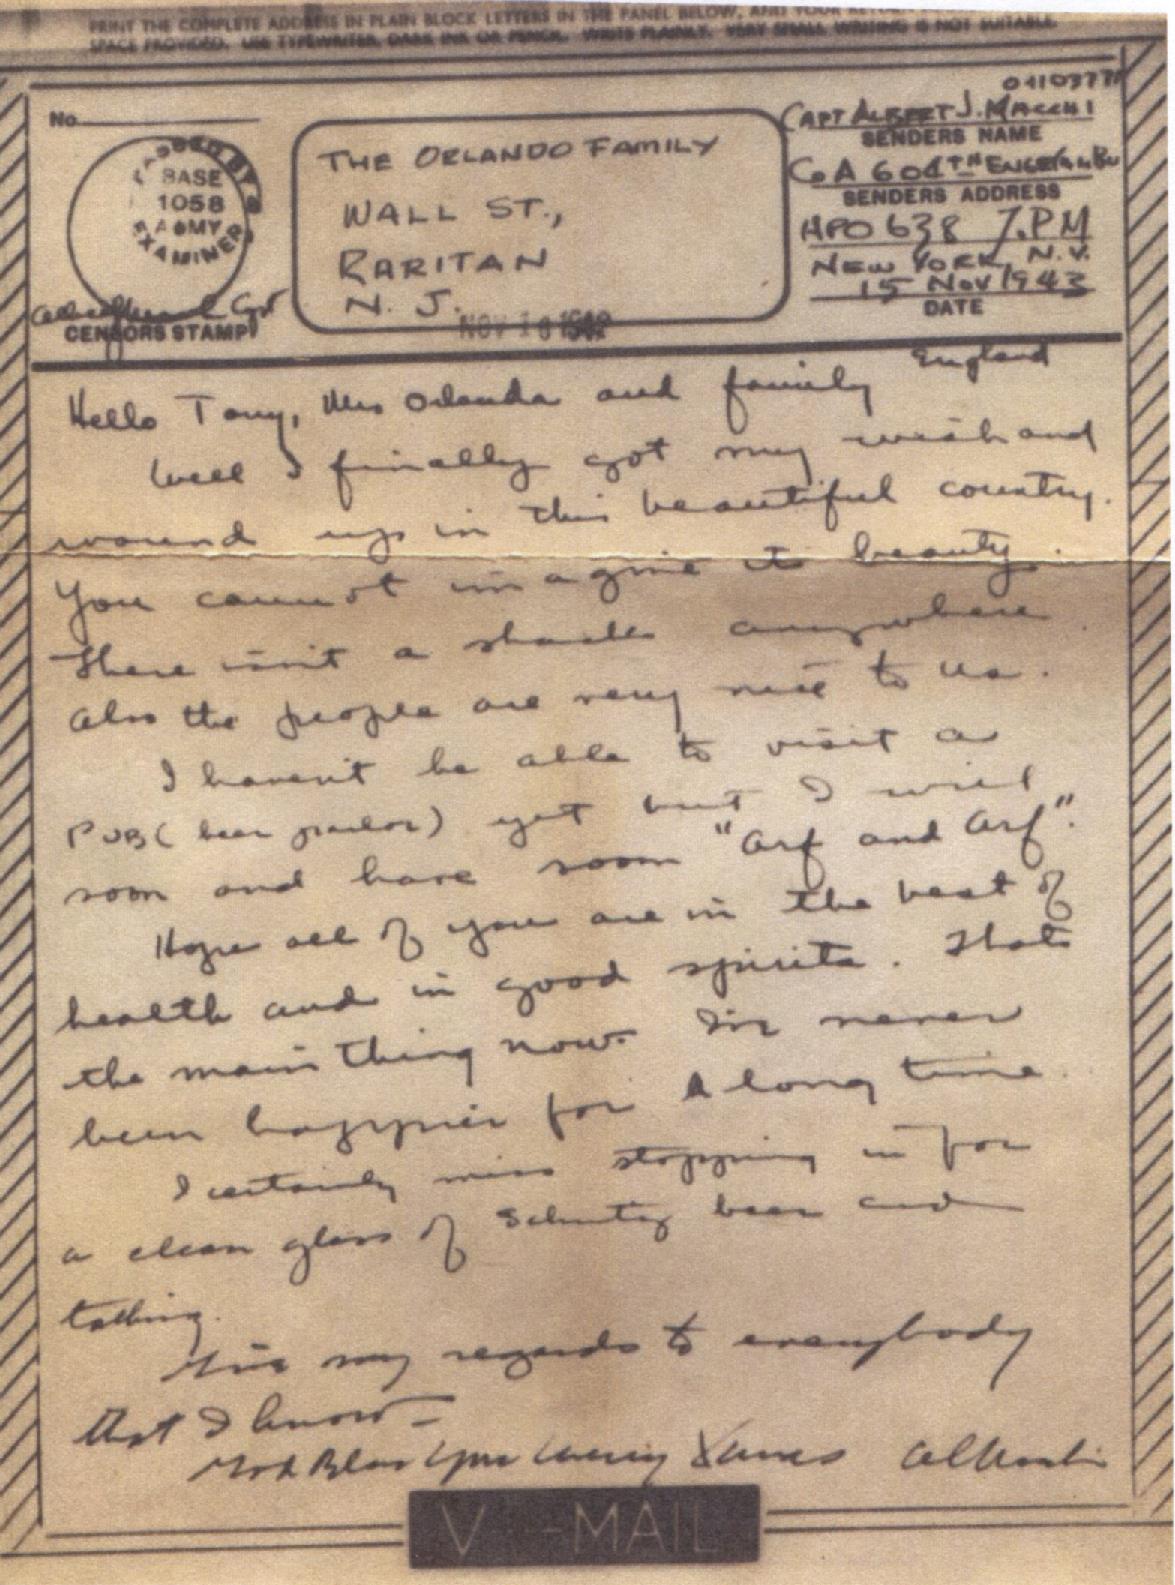 PRINT THE COMPLETE ADDRESS IN PLAIN BLOCK LETTERS IN THE PANEL BELOW, AND YOUR RETURN
SPACE PROVIDED. USE TYPEWRITER, DARK INK OR PENCIL. WRITE PLAINLY. VERY SMALL WRITING IS NOT SUITABLE.
No.
PASSED BY
BASE
1058
ARMY
EXAMINER
CENSORS STAMP
THE ORLANDO FAMILY
WALL ST.,
RARITAN
N. J.
NOV 18
CAPT ALBERT J. MACCHI
SENDERS NAME
Co A 604TH
SENDERS ADDRESS
APO 638 %.PM
NEW YORK, N.Y.
15 NOV 1943
DATE
England
Hello Tony, Mrs Orlando and family
Well I finally got my wish and
wound up in this beautiful country.
You cannot imagine its beauty.
There isn't a shack anywhere.
Also the people are very nice to us.
I haven't be able to visit a
PUB (beer parlor) yet but I will
soon and have soom "arf and arf".
Hope all of you are in the best of
health and in good spirits. Thats
the main thing now. I've never
been happier for A long time.
I certainly miss stopping in for
a clean glass of beer and
talking.
Give my regards to everybody
that I know—
God Bless you Merry Xmas Al Macchi
V---MAIL